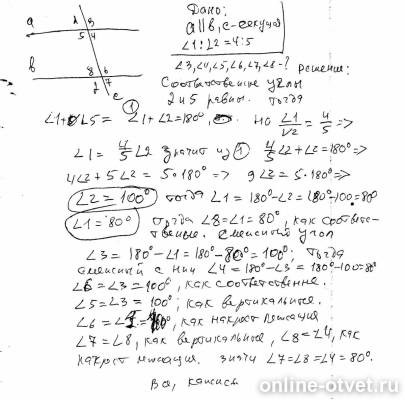 Дано:
a||b, c-секущая
∠1:∠2 = 4:5
∠3,∠4,∠5,∠6,∠7,∠8-?
Решение:
a
1 3
5 4
b
8 6
2 7
c
Соответственные углы
2 и 5 равны. тогда
∠1+∠5 = ∠1+∠2=180°, но ∠1/∠2 = 4/5 =>
∠1 = 4/5∠2 значит из ① 4/5∠2+∠2=180° =>
4∠2+5∠2 = 5·180° => 9∠2 = 5·180° =>
∠2 = 100° тогда ∠1 = 180°-∠2 = 180°-100°=80°
∠1 = 80° тогда ∠8=∠1 = 80°, как соответс-
твенные. смежный угол
∠3 = 180°-∠1 = 180°-80° = 100°, тогда
смежный с ним ∠4 = 180°-∠3 = 180°-100=80°
∠6 = ∠3 = 100°, как соответственн.
∠5 = ∠3 = 100°, как вертикальные.
∠6 = как накрест лежащая
∠7 = ∠8, как вертикальные, ∠8=∠4, как
накрест лежащая. значи ∠7=∠8=∠4 = 80°.
online-otvet.ru